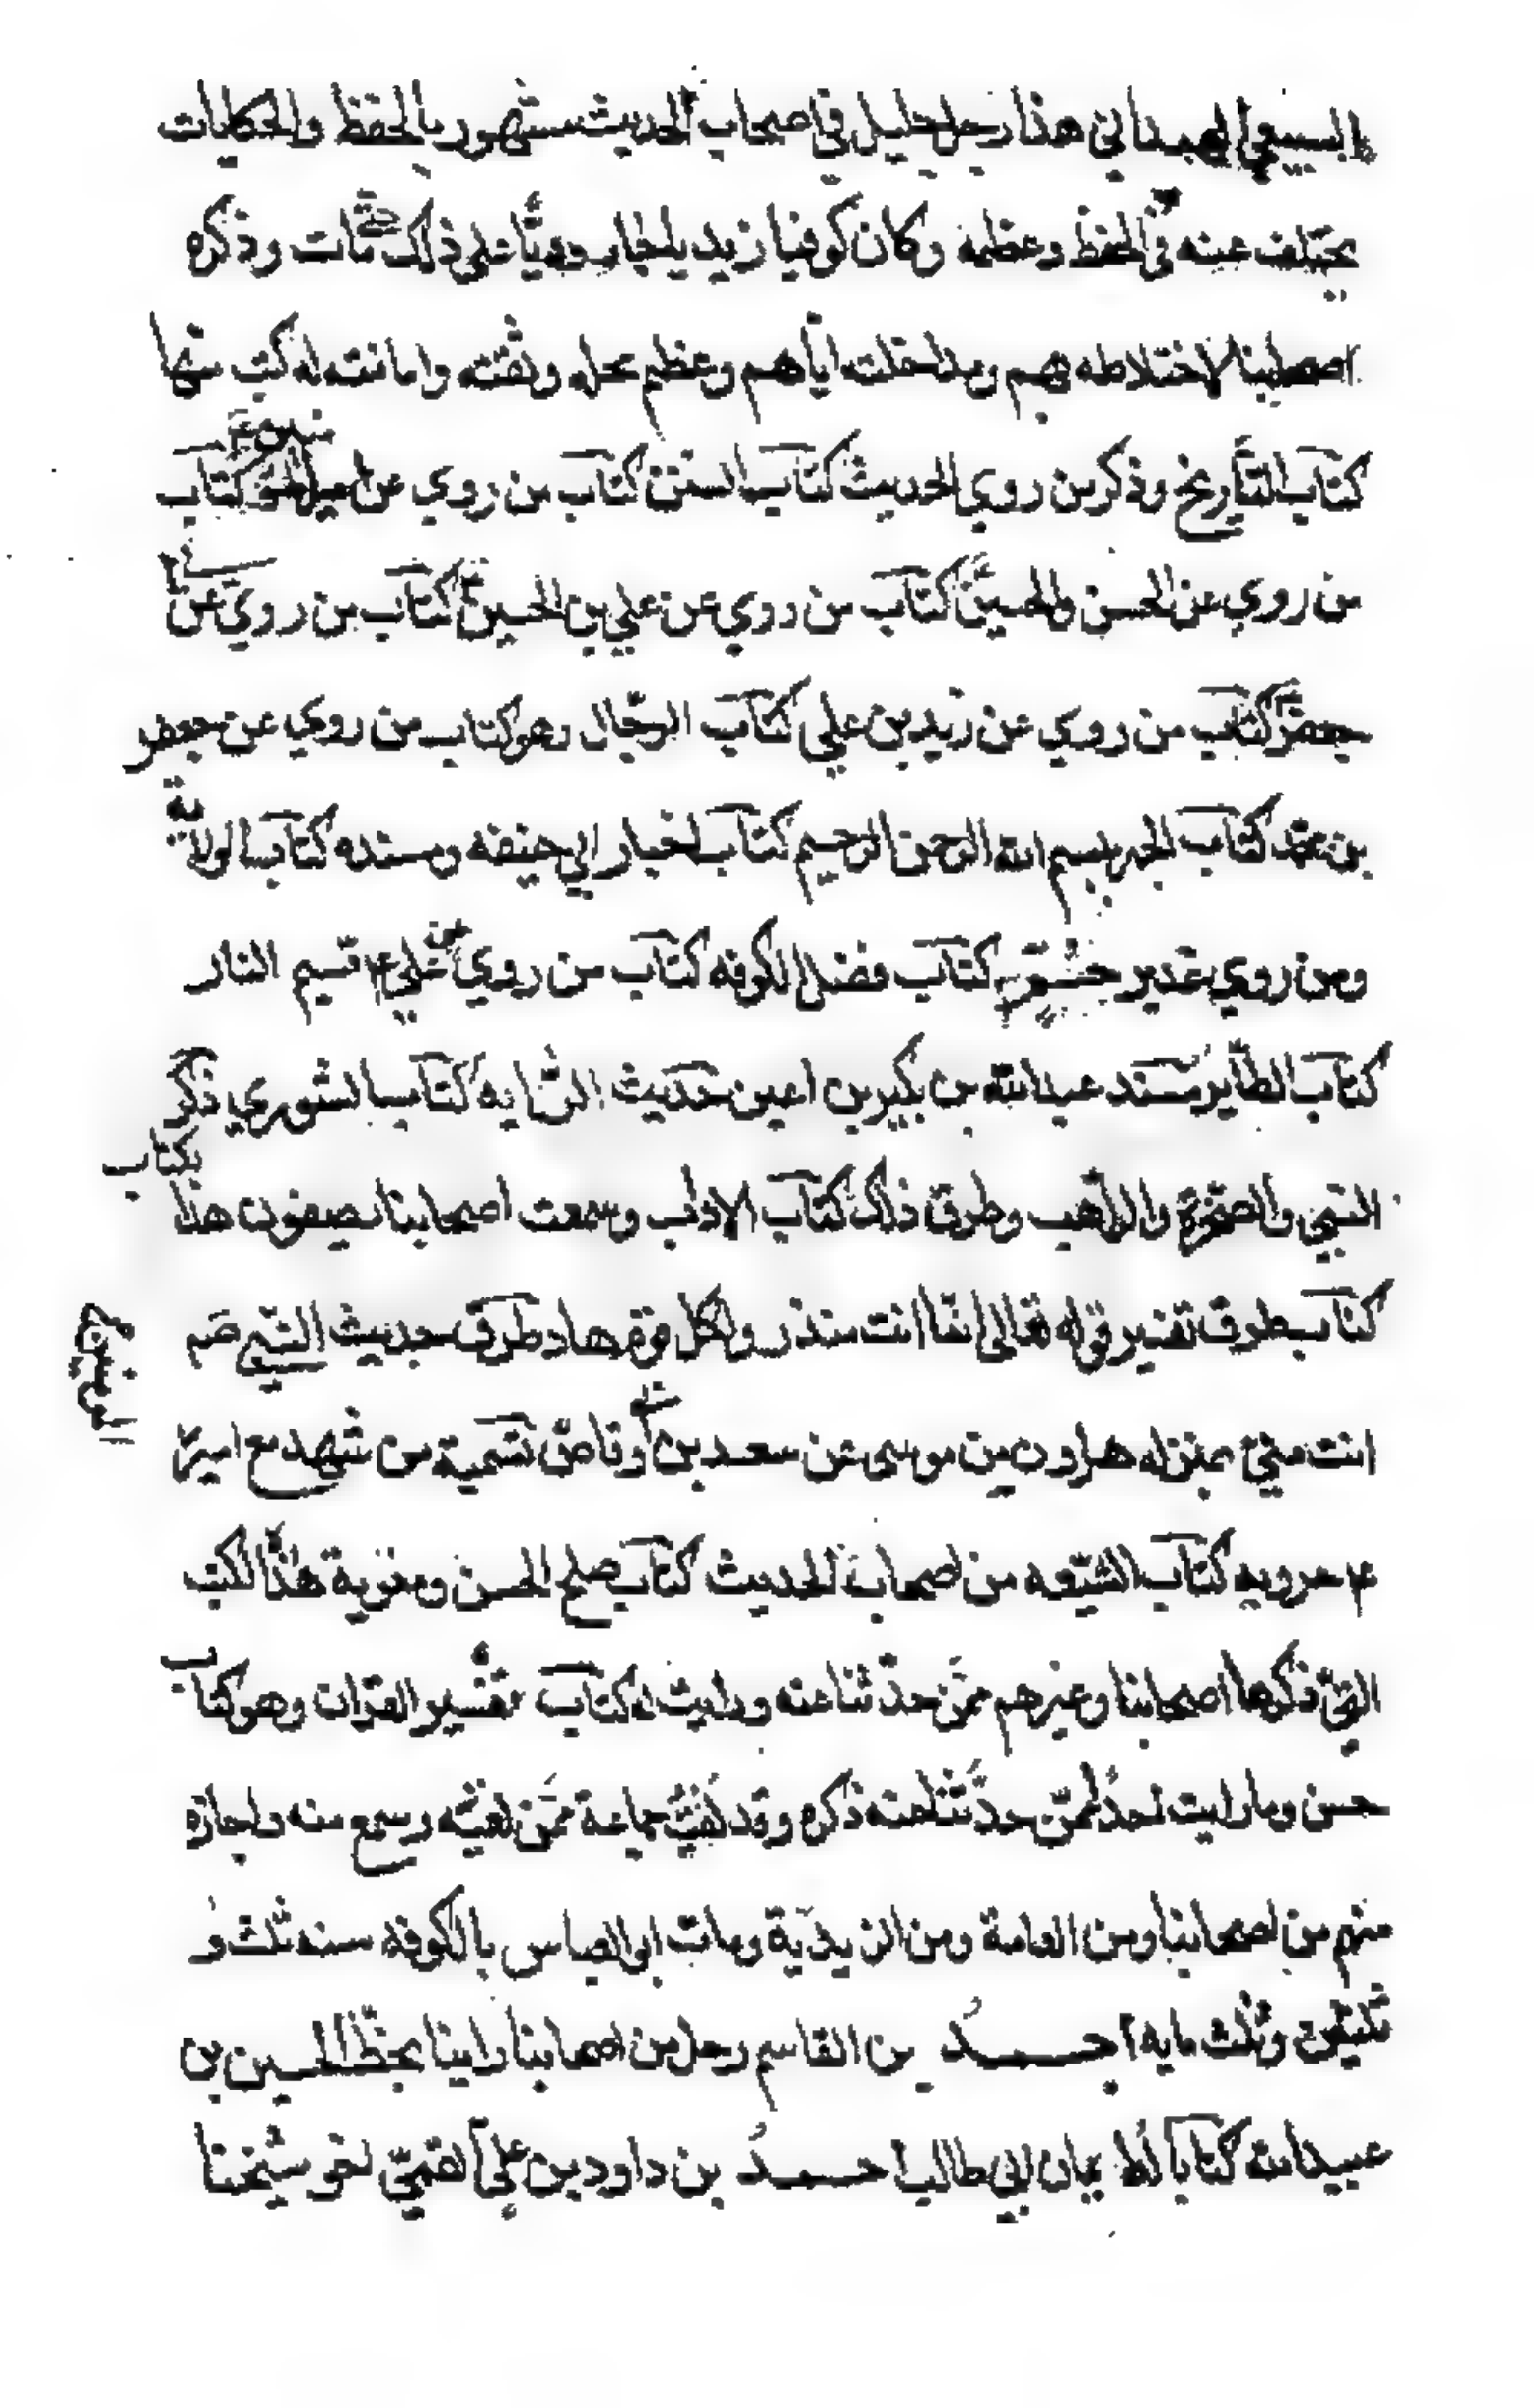 السبيعي الهمداني هذا رجل جليل في اصحاب الحديث مشهور بالحفظ والحكايات
يختلف عنه في الحفظ وعظمه وكان كوفيا زيديا جاروديا على ذلك حتى مات وذكره
اصحابنا لاختلاطه بهم ومداخلته اياهم وعظم محله وثقته وامانته له كتب منها
كتاب التاريخ وذكر من روي الحديث كتاب السنن كتاب من روي عن امير المؤمنين كتاب
من روي عن الحسن والحسين كتاب من روي عن علي بن الحسين كتاب من روي عن ابي
جعفر كتاب من روي عن زيد بن علي كتاب الرجال وهو كتاب من روي عن جعفر
بن محمد كتاب الجهر ببسم الله الرحمن الرحيم كتاب اخبار ابي حنيفه ومسنده كتاب الولاية
ومن روي غدير خم كتاب فضل الكوفه كتاب من روي عن علي ع قسيم النار
كتاب الطاير مسند عبد الله بن بكير بن اعين حديث الراية كتاب الشوري ذكر
النبي والصخرة والراهب وطرق ذلك كتاب الاداب وسمعت اصحابنا يصفون هذا الكتاب
كتاب طرق تفسير قوله تعالى انما انت منذر ولكل قوم هاد طرق حديث النبي صم
انت مني بمنزله هارون من موسى عن سعد بن ابي وقاص تسمية من شهد مع امير المؤمنين
ع حروبه كتاب الشيعه من اصحاب الحديث كتاب صلح الحسن ومعوية هذه الكتب
التي ذكرها اصحابنا وغيرهم ممن حدثنا عنه ورايت له كتاب تفسير القران وهو كتاب
حسن وما رايت احدا ممن حدثنا عنه ذكره وقد لقيت جماعة ممن لقيه وسمع منه واجازه
منهم من اصحابنا ومن العامة ومن الزيدية ومات ابو العباس بالكوفه سنه ثلث و
ثلثين وثلث مايه احمد بن القاسم رجل من اصحابنا راينا بخط الحسين بن
عبيد الله كتابا له ايمان ابي طالب احمد بن داود بن علي القمي اخو شيخنا